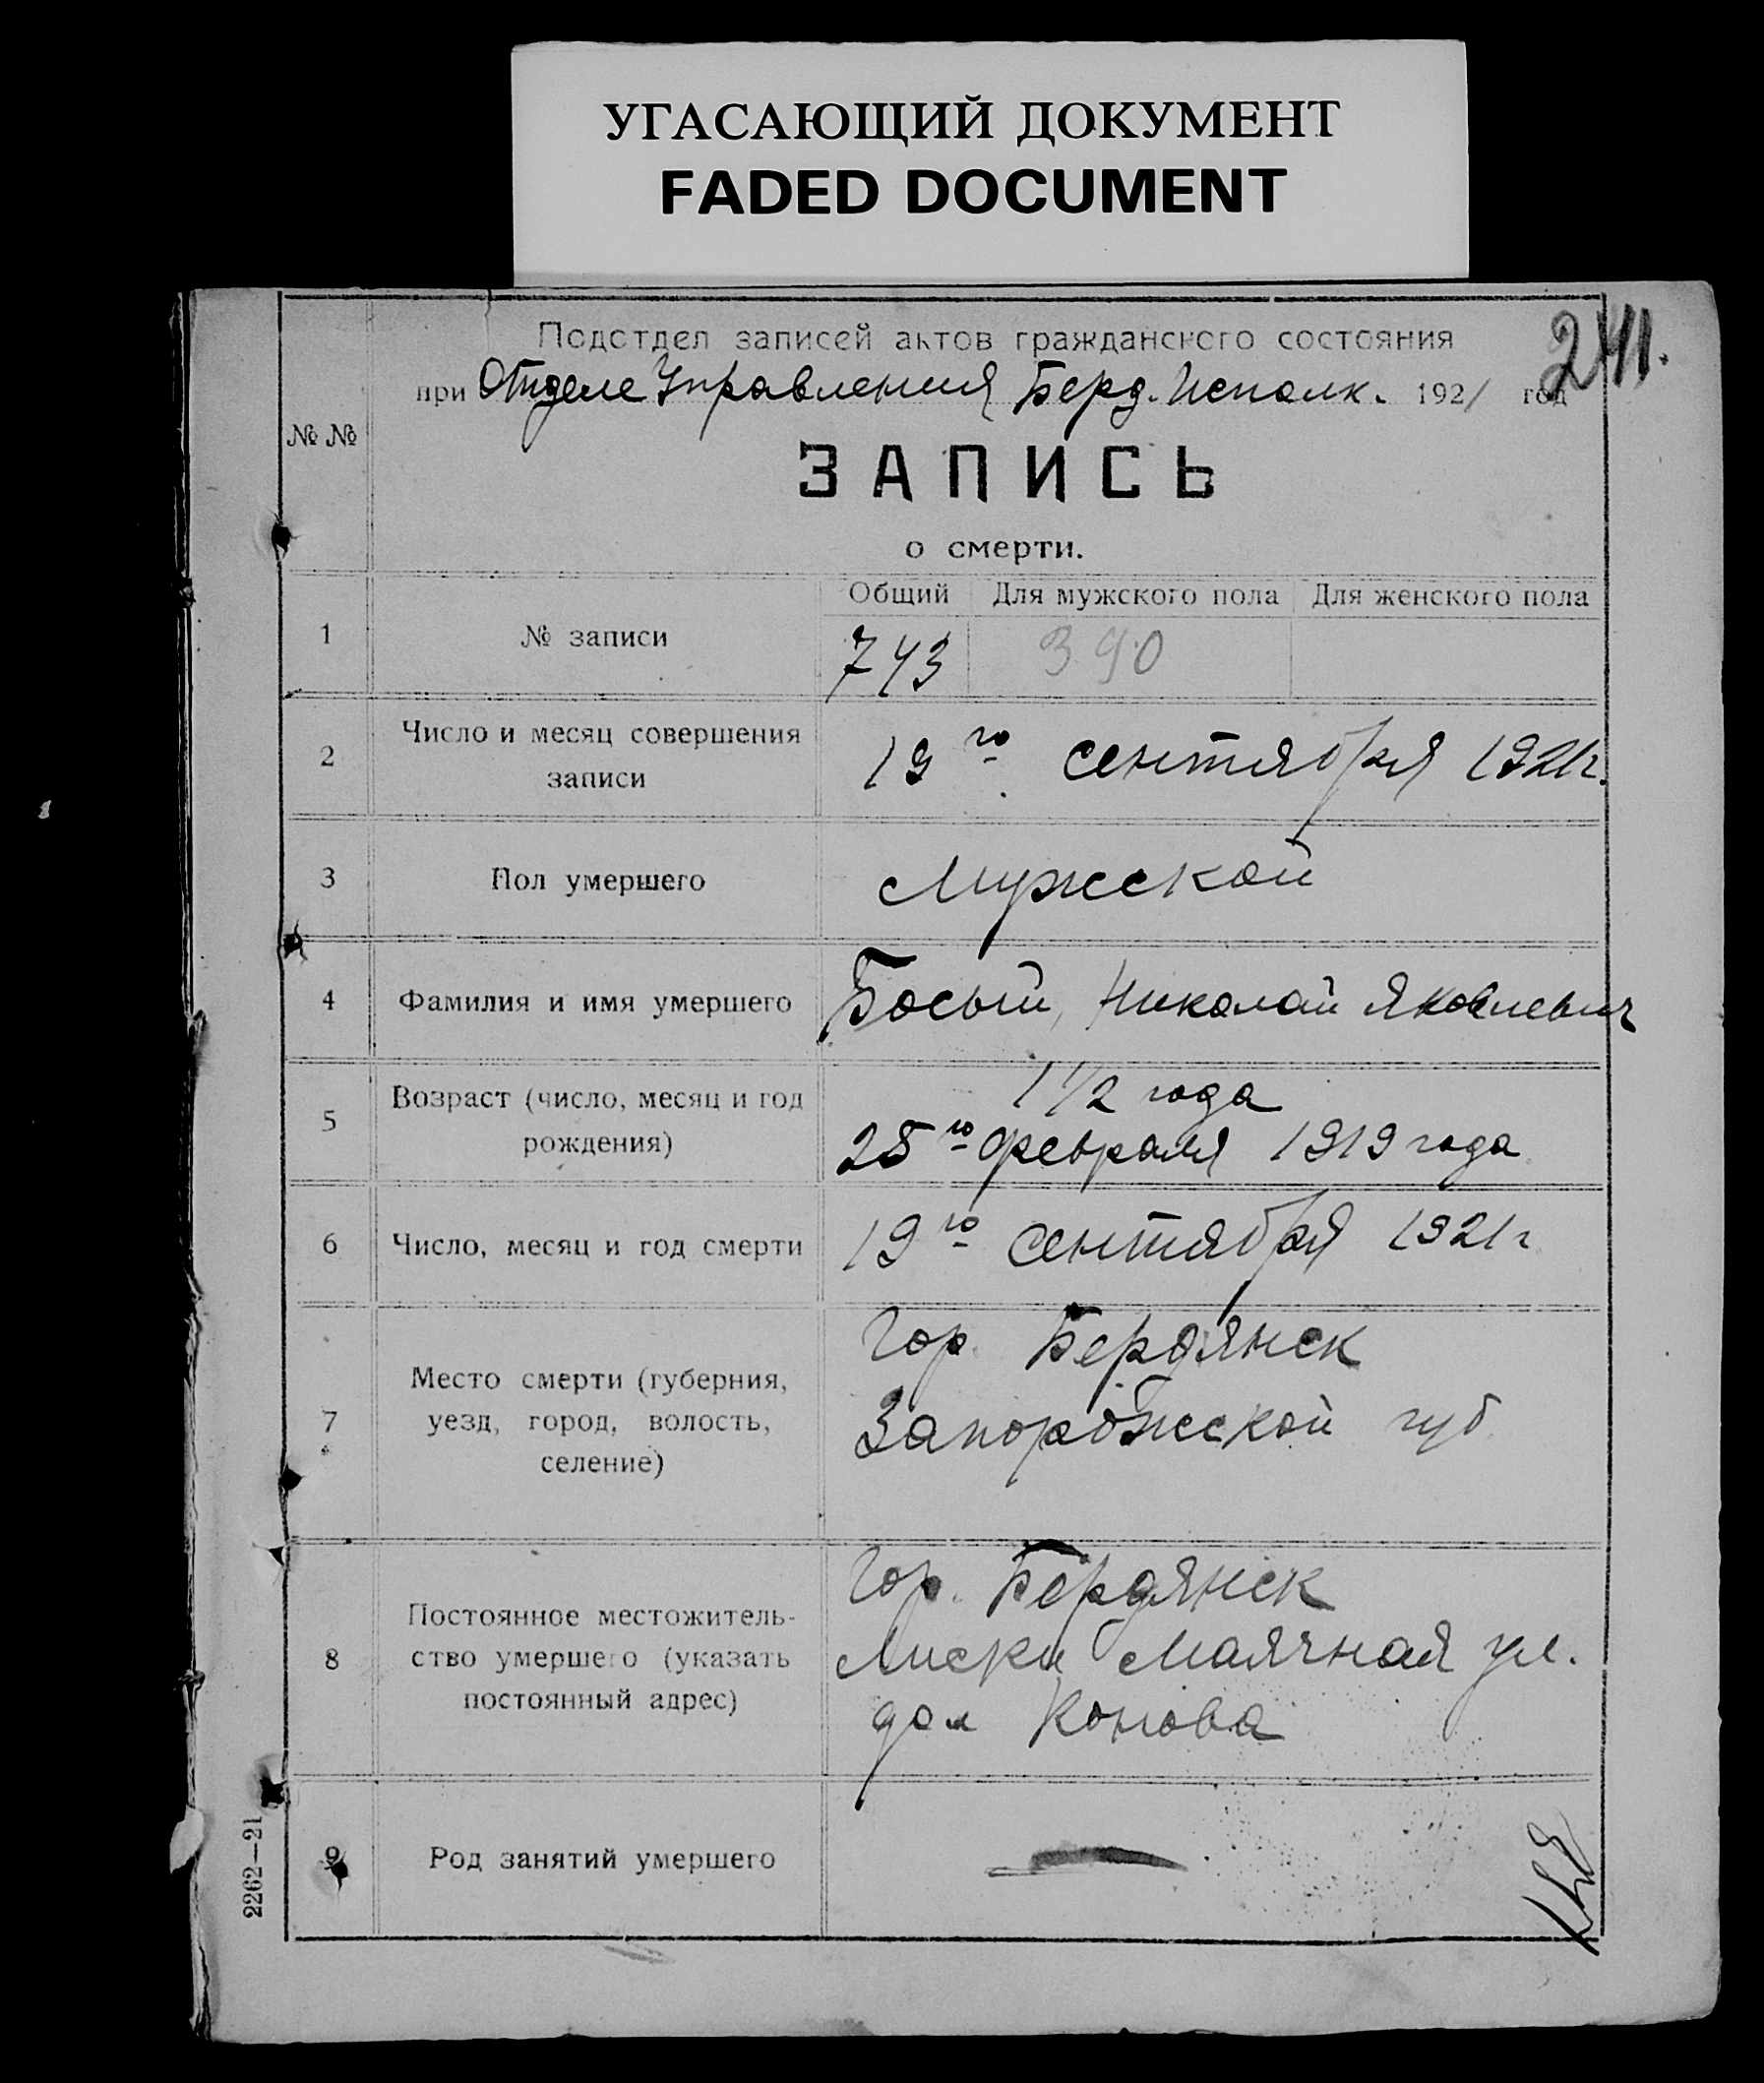 УГАСАЮЩИЙ ДОКУМЕНТ
FADED DOCUMENT
241.
Подотдел записей актов гражданского состояния
при Отделе Управления Берд. Исполк. 1921 год
№ №
ЗАПИСЬ
о смерти.
Общий Для мужского пола Для женского пола
1 № записи 743 390
2 Число и месяц совершения
записи
19го сентября 1921г.
3 Пол умершего Мужской
4 Фамилия и имя умершего Босый, Николай Яковлевич
5 Возраст (число, месяц и год
рождения)
1 1/2 года
25го февраля 1919 года
6 Число, месяц и год смерти 19го сентября 1921г
7 Место смерти (губерния,
уезд, город, волость,
селение)
Гор. Бердянск
Запорожской губ
8 Постоянное местожитель-
ство умершего (указать
постоянный адрес)
Гор. Бердянск
Лиски Маячная ул.
дом Конова
9 Род занятий умершего —
2262—21